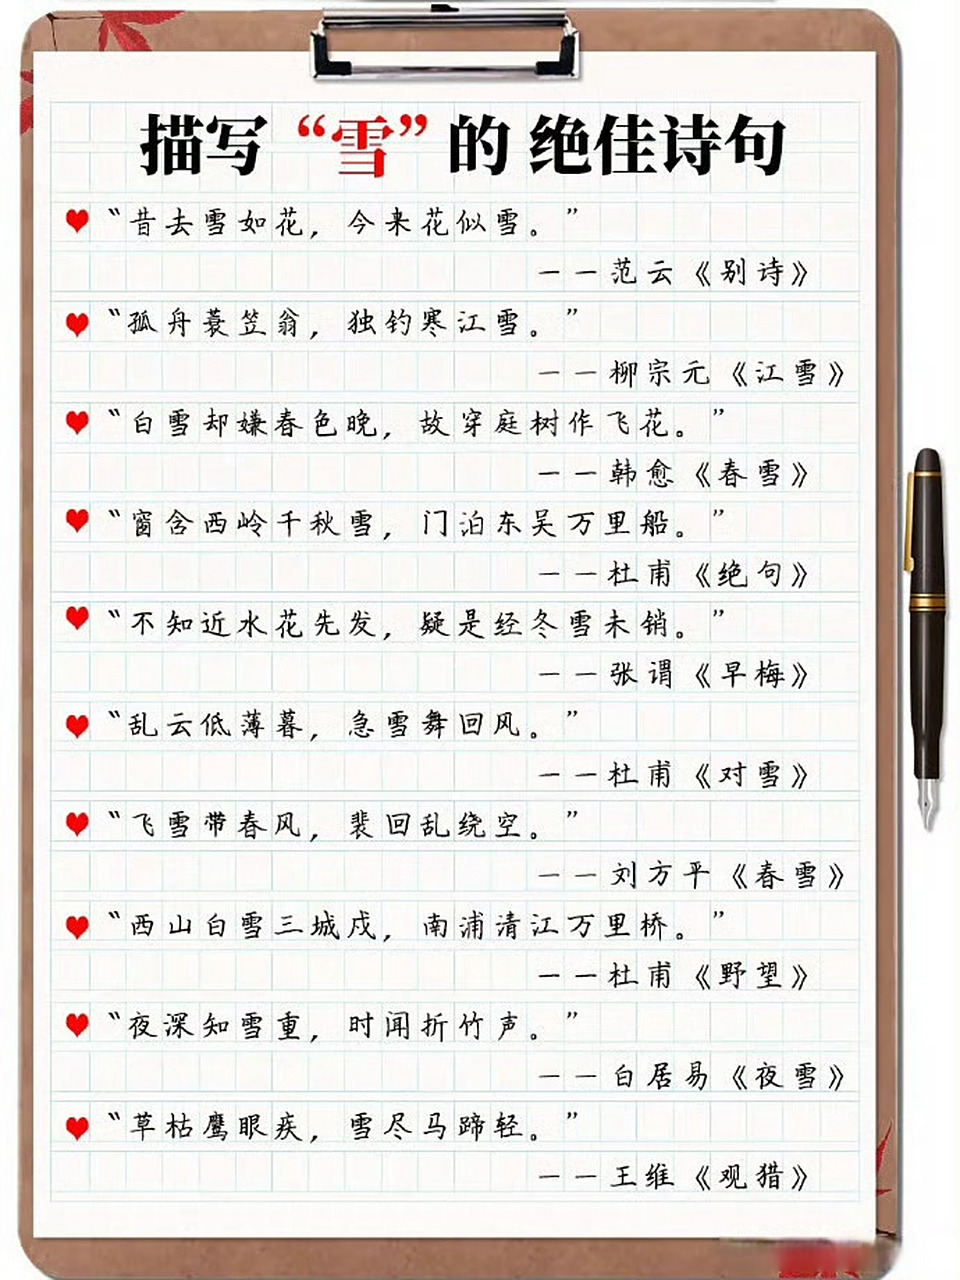 描写“雪”的绝佳诗句
“昔去雪如花，今来花似雪。”
——范云《别诗》
“孤舟蓑笠翁，独钓寒江雪。”
——柳宗元《江雪》
“白雪却嫌春色晚，故穿庭树作飞花。”
——韩愈《春雪》
“窗含西岭千秋雪，门泊东吴万里船。”
——杜甫《绝句》
“不知近水花先发，疑是经冬雪未销。”
——张谓《早梅》
“乱云低薄暮，急雪舞回风。”
——杜甫《对雪》
“飞雪带春风，裴回乱绕空。”
——刘方平《春雪》
“西山白雪三城戍，南浦清江万里桥。”
——杜甫《野望》
“夜深知雪重，时闻折竹声。”
——白居易《夜雪》
“草枯鹰眼疾，雪尽马蹄轻。”
——王维《观猎》